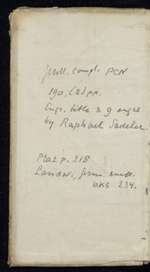 coll. compl. PCN
190, [2] pp.
Engr. title & 9 engr.
by Raphael Sadeler
Praz p. 218
Landwr,
UKS 234.